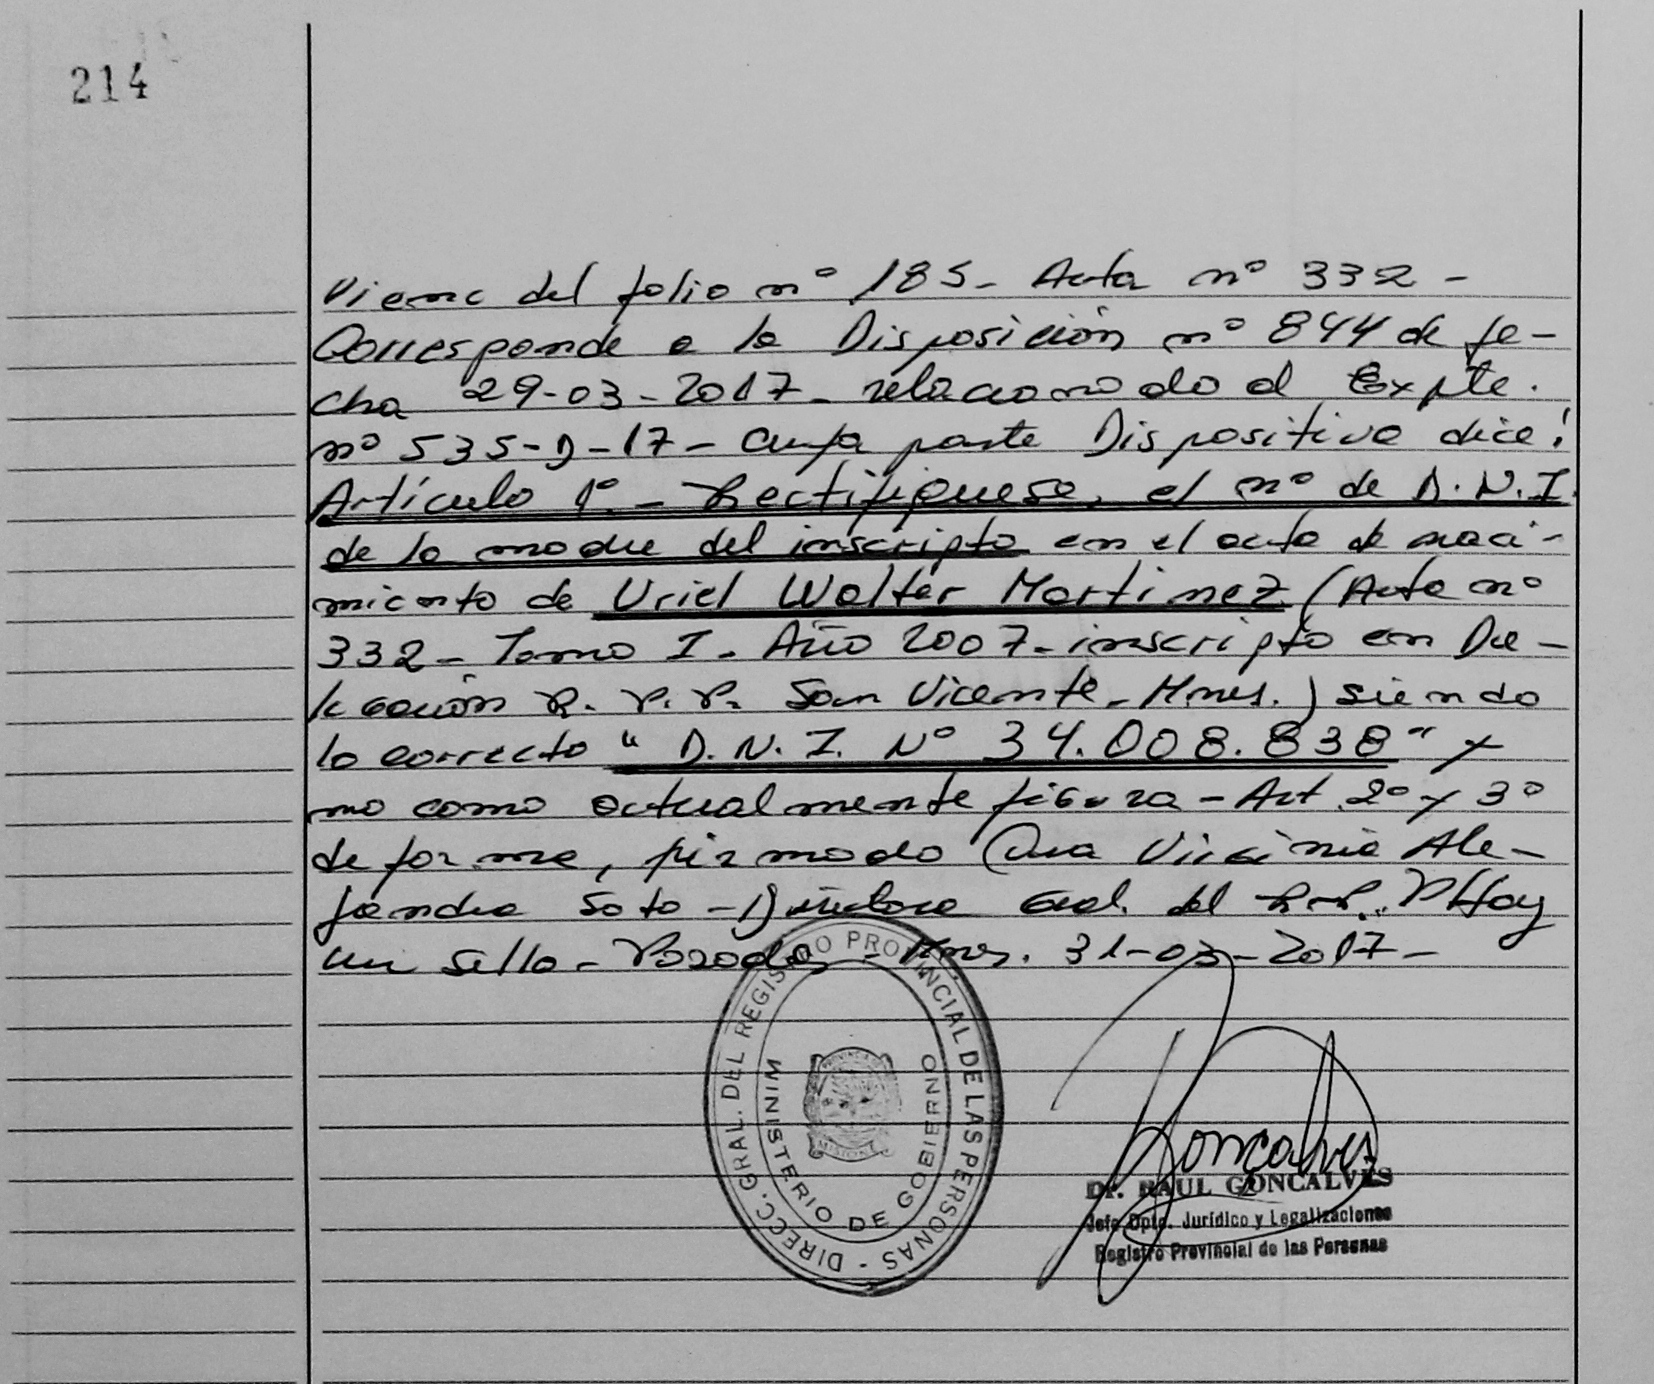 214
Viene del folio nº 185- Acta nº 332 -
Corresponde a la Disposición nº 844 de fe-
cha 29-03-2017- relacionado al Expte.
nº 535-D-17- cuya parte Dispositiva dice:
Artículo 1º.- Rectifíquese, el nº de D.N.I.
de la madre del inscripto en el acta de naci-
miento de Uriel Walter Martinez (Acta nº
332- Tomo I- Año 2007- inscripto en De-
legación R. P. P. San Vicente- Mnes.) siendo
lo correcto " D.N.I. Nº 34.008.838" y
no como actualmente figura - Art 2º y 3º
de forma, firmado Virginia Ale-
jandra Soto - Directora Gral. del R.P.P. Hay
un sello- Posadas - Mnes. 31-03-2017-
DIRECC. GRAL. DEL REGISTRO PROVINCIAL DE LAS PERSONAS -
MINISTERIO DE GOBIERNO
Goncalves
Dr. RAUL GONCALVES
Jefe Dpto. Jurídico y Legalizaciones
Registro Provincial de las Personas